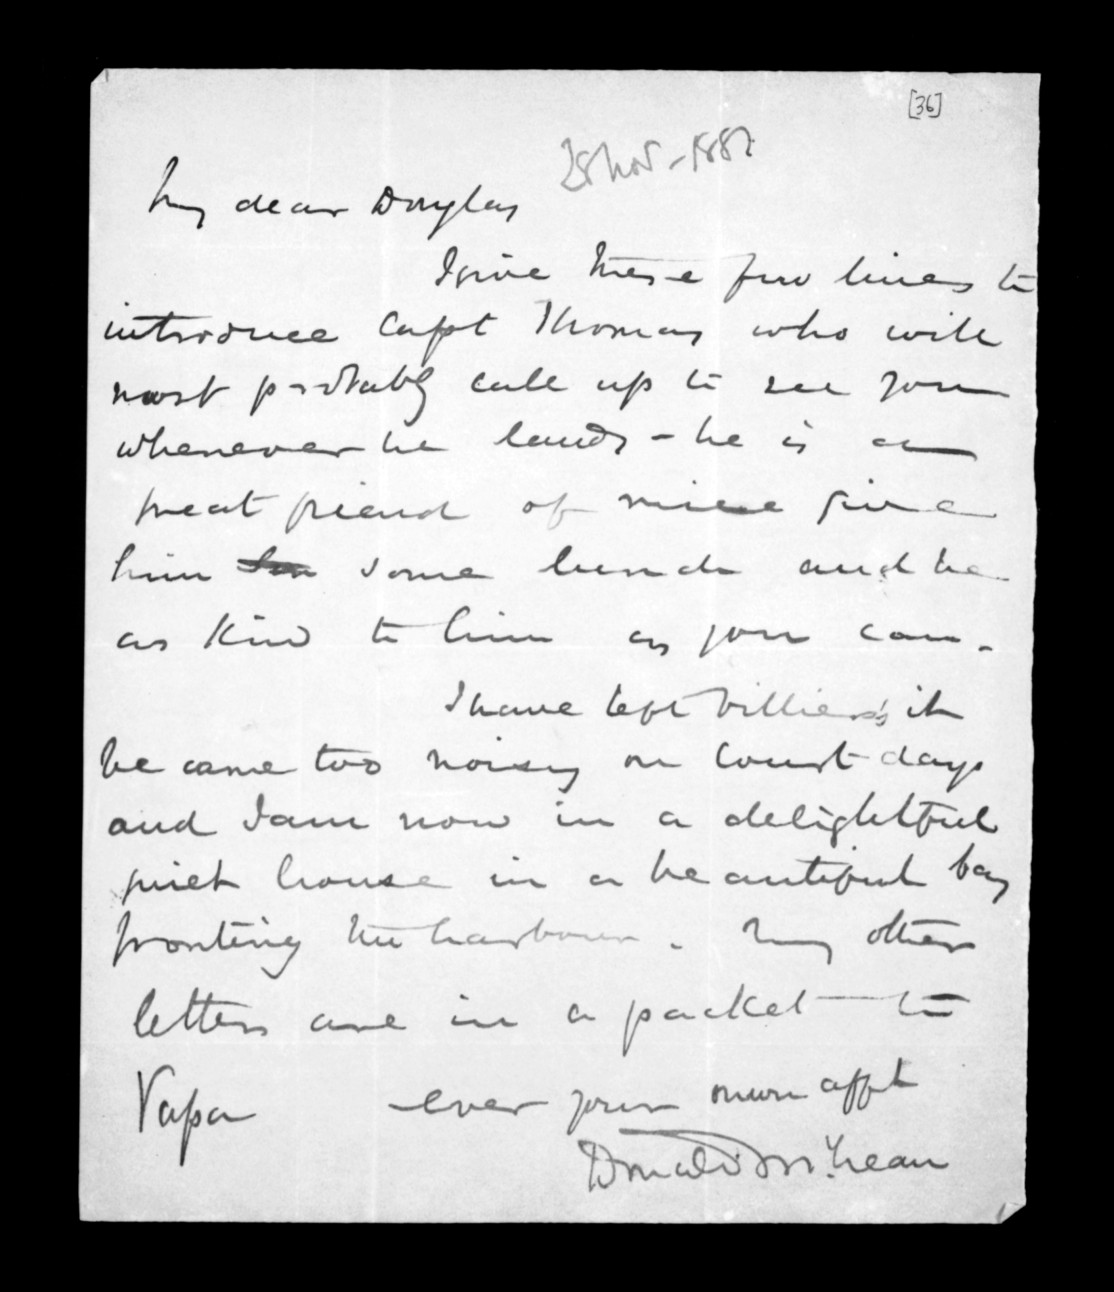 [36]
28 Nov - 1887
My dear Douglas
I give these few lines to
introduce Capt Thomas who will
most probably call up to see you
whenever he lands - he is a
great friend of mine give
him some lunch and be
as kind to him as you can.
I have left Villiers's it
became too noisy on Court days
and I am now in a delightful
quiet house in a beautiful bay
fronting the harbour. My other
letters are in a packet to
Papa ever your own afft
Donald McLean